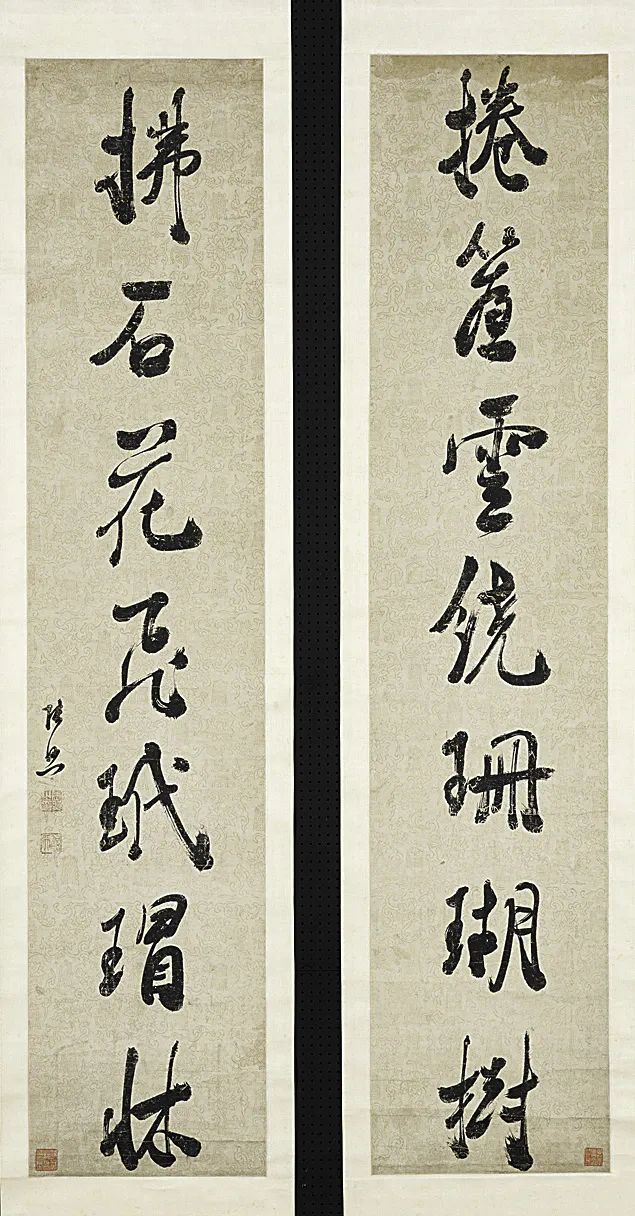 捲簾雲繞珊瑚樹
拂石花飛玳瑁牀
張照